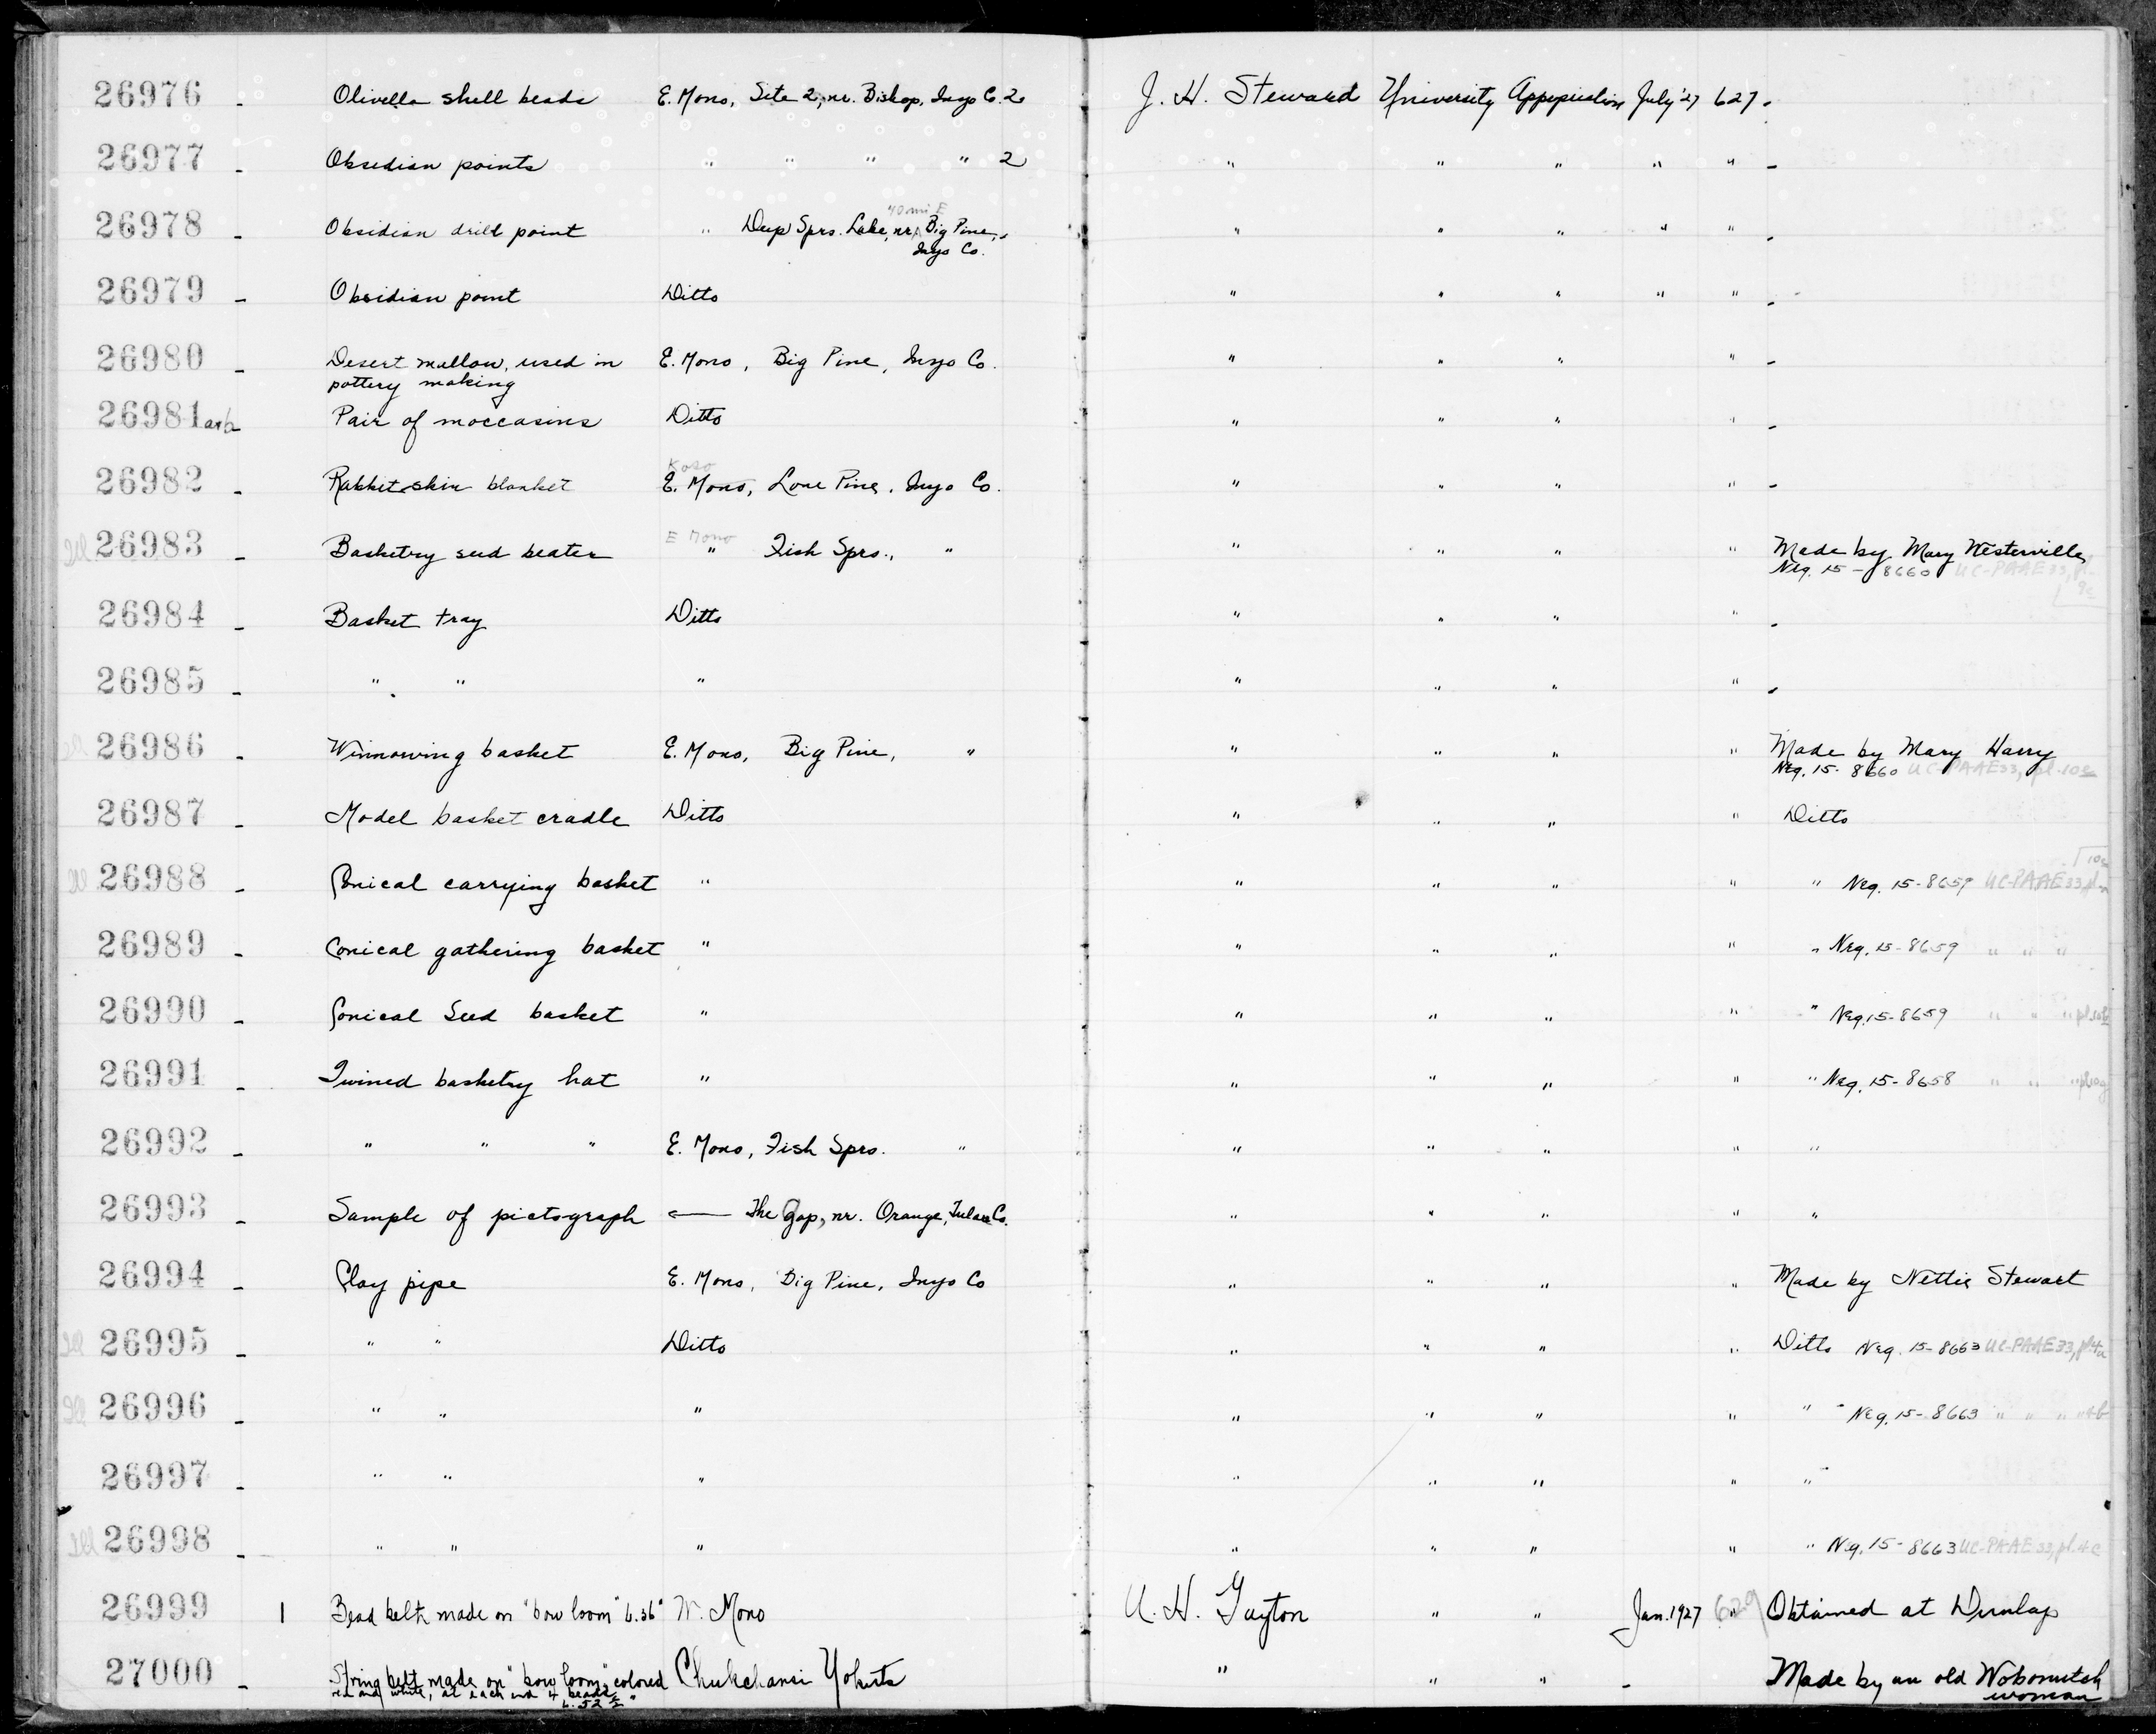 26976 - Olivella shell beads E. Mono, Site 2, nr. Bishop, Inyo Co. 2 J. H. Steward University Appropriation July '27 627 -
26977 - Obsidian points " " " " 2 " " " " " -
40 mi E
26978 - Obsidian drill point " Deep Sprs. Lake, nr. Big Pine, " " " " " -
Inyo Co.
26979 - Obsidian point Ditto " " " " " -
26980 - Desert mallow, used in E. Mono, Big Pine, Inyo Co. " " " " -
pottery making
26981 a+b - Pair of moccasins Ditto " " " " -
Koso
26982 - Rabbit-skin blanket E. Mono, Lone Pine, Inyo Co. " " " " -
E Mono
Ill 26983 - Basketry seed beater " Fish Sprs., " " " " " Made by Mary Westerville
Neg. 15-8660 UC-PAAE 33, pl.
9c
26984 - Basket tray Ditto " " " " -
26985 - " " " " " " " -
Ill 26986 - Winnowing basket E. Mono, Big Pine, " " " " " Made by Mary Harry
Neg. 15-8660 UC-PAAE 33, pl. 10
26987 - Model basket cradle Ditto " " " " Ditto
Ill 26988 - Conical carrying basket " " " " " " Neg. 15-8659 UC-PAAE 33, pl.
26989 - Conical gathering basket " " " " " " Neg. 15-8659 " " "
26990 - Conical Seed basket " " " " " " Neg. 15-8659 " " "
26991 - Twined basketry hat " " " " " " Neg. 15-8658 " " "
26992 - " " " E. Mono, Fish Sprs. " " " " " "
26993 - Sample of pictograph ← The Gap, nr. Orange, Tulare Co. " " " " "
26994 - Clay pipe E. Mono, Big Pine, Inyo Co " " " " Made by Nettie Stewart
Ill 26995 - " " Ditto " " " " Ditto Neg. 15-8663 UC-PAAE 33, pl 4a
Ill 26996 - " " " " " " " " Neg. 15-8663 " " " " 4b
26997 - " " " " " " " "
Ill 26998 - " " " " " " " " Neg. 15-8663 UC-PAAE 33, pl. 4c
26999 1 Bead belt, made on "bow loom" L.36" W. Mono A. H. Gayton " " Jan. 1927 629 Obtained at Dunlap
27000 - String belt made on "bow loom," colored Chukchansi Yokuts " " " - Made by an old Wobonutch
red and white, at each end 4 beads woman
L. 52 1/2"